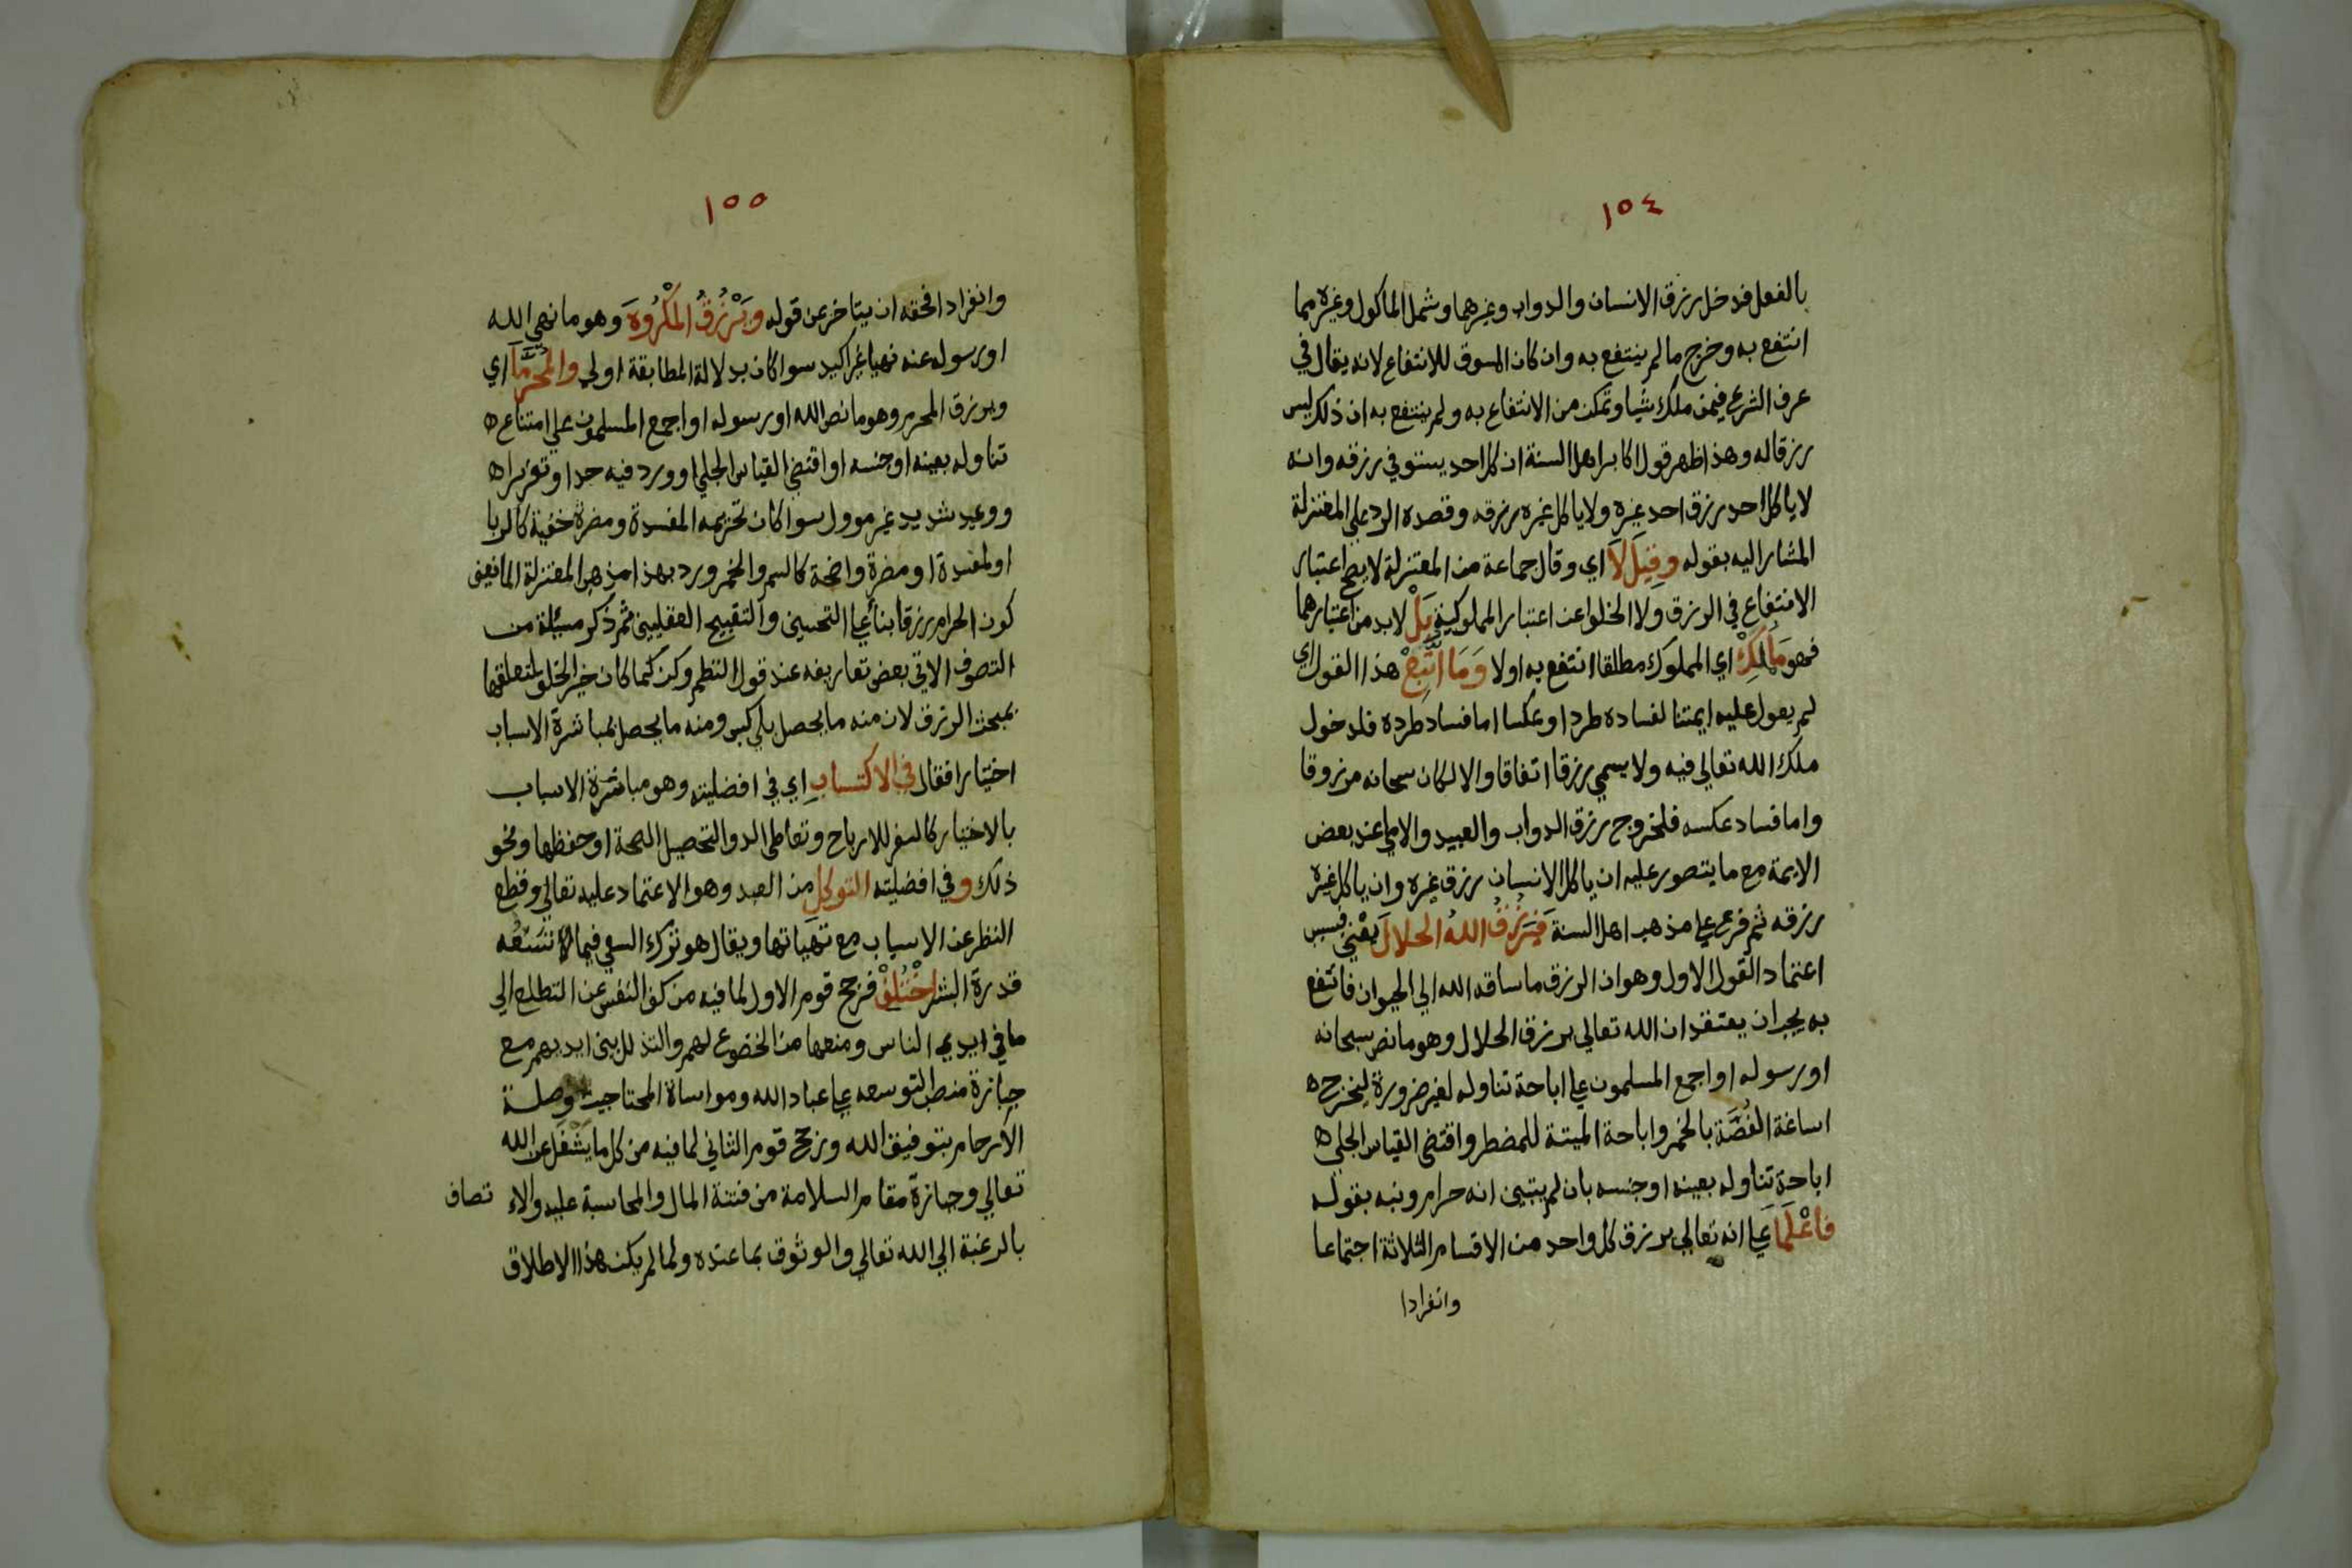 ١٥٤
بالفعل فدخل رزق الانسان والدواب وغيرهما وشمل الماكول وغيره مما
انتفع به وخرج ما لم ينتفع به وان كان السوق للانتفاع لانه يقال في
عرف الشرع فيمن ملك شيا وتمكن من الانتفاع به ولم ينتفع به ان ذلك ليس
رزقا له وهذا ظهر قول اكابر اهل السنة ان كل احد يستوفي رزقه وانه
لا ياكل احد رزق احد غيره ولا ياكل غيره رزقه وقصده الرد علي المعتزلة
المشار اليه بقوله وقِيلَ لَا اي وقال جماعة من المعتزلة لا يصح اعتبار
الانتفاع في الرزق ولا الخلو اعن اعتبار المملوكية بَلْ لابد من اعتبارهما
فهو مَا مُلِكْ اي المملوك مطلقا انتفع به اولا وَمَا اتُّبِعْ هذا القول اي
لم يعول عليه ايمتنا لفساده طردا وعكسا اما فساد طرده فلدخول
ملك الله تعالي فيه ولا يسمي رزقا اتفاقا والا لكان سبحانه مرزوقا
واما فساد عكسه فلخروج رزق الدواب والعبيد والاما عند بعض
الايمة مع ما يتصور عليه ان ياكل الانسان رزق غيره وان ياكل غيره
رزقه ثم فرع علي مذهب اهل السنة فَيَرْزُقُ اللهُ الحلالَ يعْني فبسبب
اعتماد القول الاول وهو ان الرزق ما ساقه الله الي الحيوان فانتفع
به يجب ان يعتقد ان الله تعالي يرزق الحلال وهو ما نص سبحانه
او رسوله او اجمع المسلمون علي اباحة تناوله لغير ضرورة ليخرج ه
اساغة الغُصَّة بالخمر واباحة الميتة للمضطر واقتضي القياس الجلي ه
اباحة تناوله بعينه او جنسه بان لم يتبين انه حرام ونبه بقوله
فاعْلَمَا علي انه تعالي يرزق كل واحد من الاقسام الثلاثة اجتماعا
وانفرادا
١٥٥
وانفرادا فحقه ان يتاخر عن قوله ويَرْزُقُ المَكْرُوهَ وهو ما نهي الله
او رسوله عنه نهيا غير اكيد سوا كان بدلالة المطابقة اولي والمُحَرَّمَا اي
ويرزق المحرم وهو ما نص الله او رسوله او اجمع المسلمون علي امتناع ه
تناوله بعينه او جنسه او اقتضي القياس الجلي او ورد فيه حدا وتعزيرا ه
ووعيد شديد غير موول سوا كان تحريمه المفسدة ومضرة خفية كالربا
او لمفسدة او مضرة واضحة كالسم والخمر ورد بهذا مذهب المعتزلة المانعين
كون الحرام رزقا بنأ علي التحسين والتقبيح العقليين ثم ذكر مسئلة من
التصوف الاتي بعض تعاريفه عند قول النظم وكن كما كان خير الخلق لتعلقها
بمبحث الرزق لان منه ما يحصل بلا كسب ومنه ما يحصل بمباشرة الاسباب
اختيارا فقال في الاكتسابِ اي في افضليته وهو مباشرة الاسباب
بالاختيار كالسفر للارباح وتعاطي الدوا لتحصيل الصحة او حفظها ونحو
ذلك و في افضليته التوكلِ من العبد وهو الاعتماد عليه تعالي وقطع
النظر عن الاسباب مع تهياتها ويقال هو ترك السعي فيما لا تَسَعُه
قدرة البشر اخْتُلِفْ فرجح قوم الاول لما فيه من كف النفس عن التطلع الي
ما في ايدي الناس ومنعها من الخضوع لهم والتذلل بين ايديهم مع
حيازة منصب التوسعه علي عباد الله ومواساة المحتاجين وصلة
الارحام بتوفيق الله ورجح قوم الثاني لما فيه من كل ما يَشْغل عن الله
تعالي وحيازة مقام السلامة من فتنة المال والمحاسبة عليه والا تصاف
بالرغبة الي الله تعالي والوثوق بما عنده ولما لم يكن هذا الاطلاق